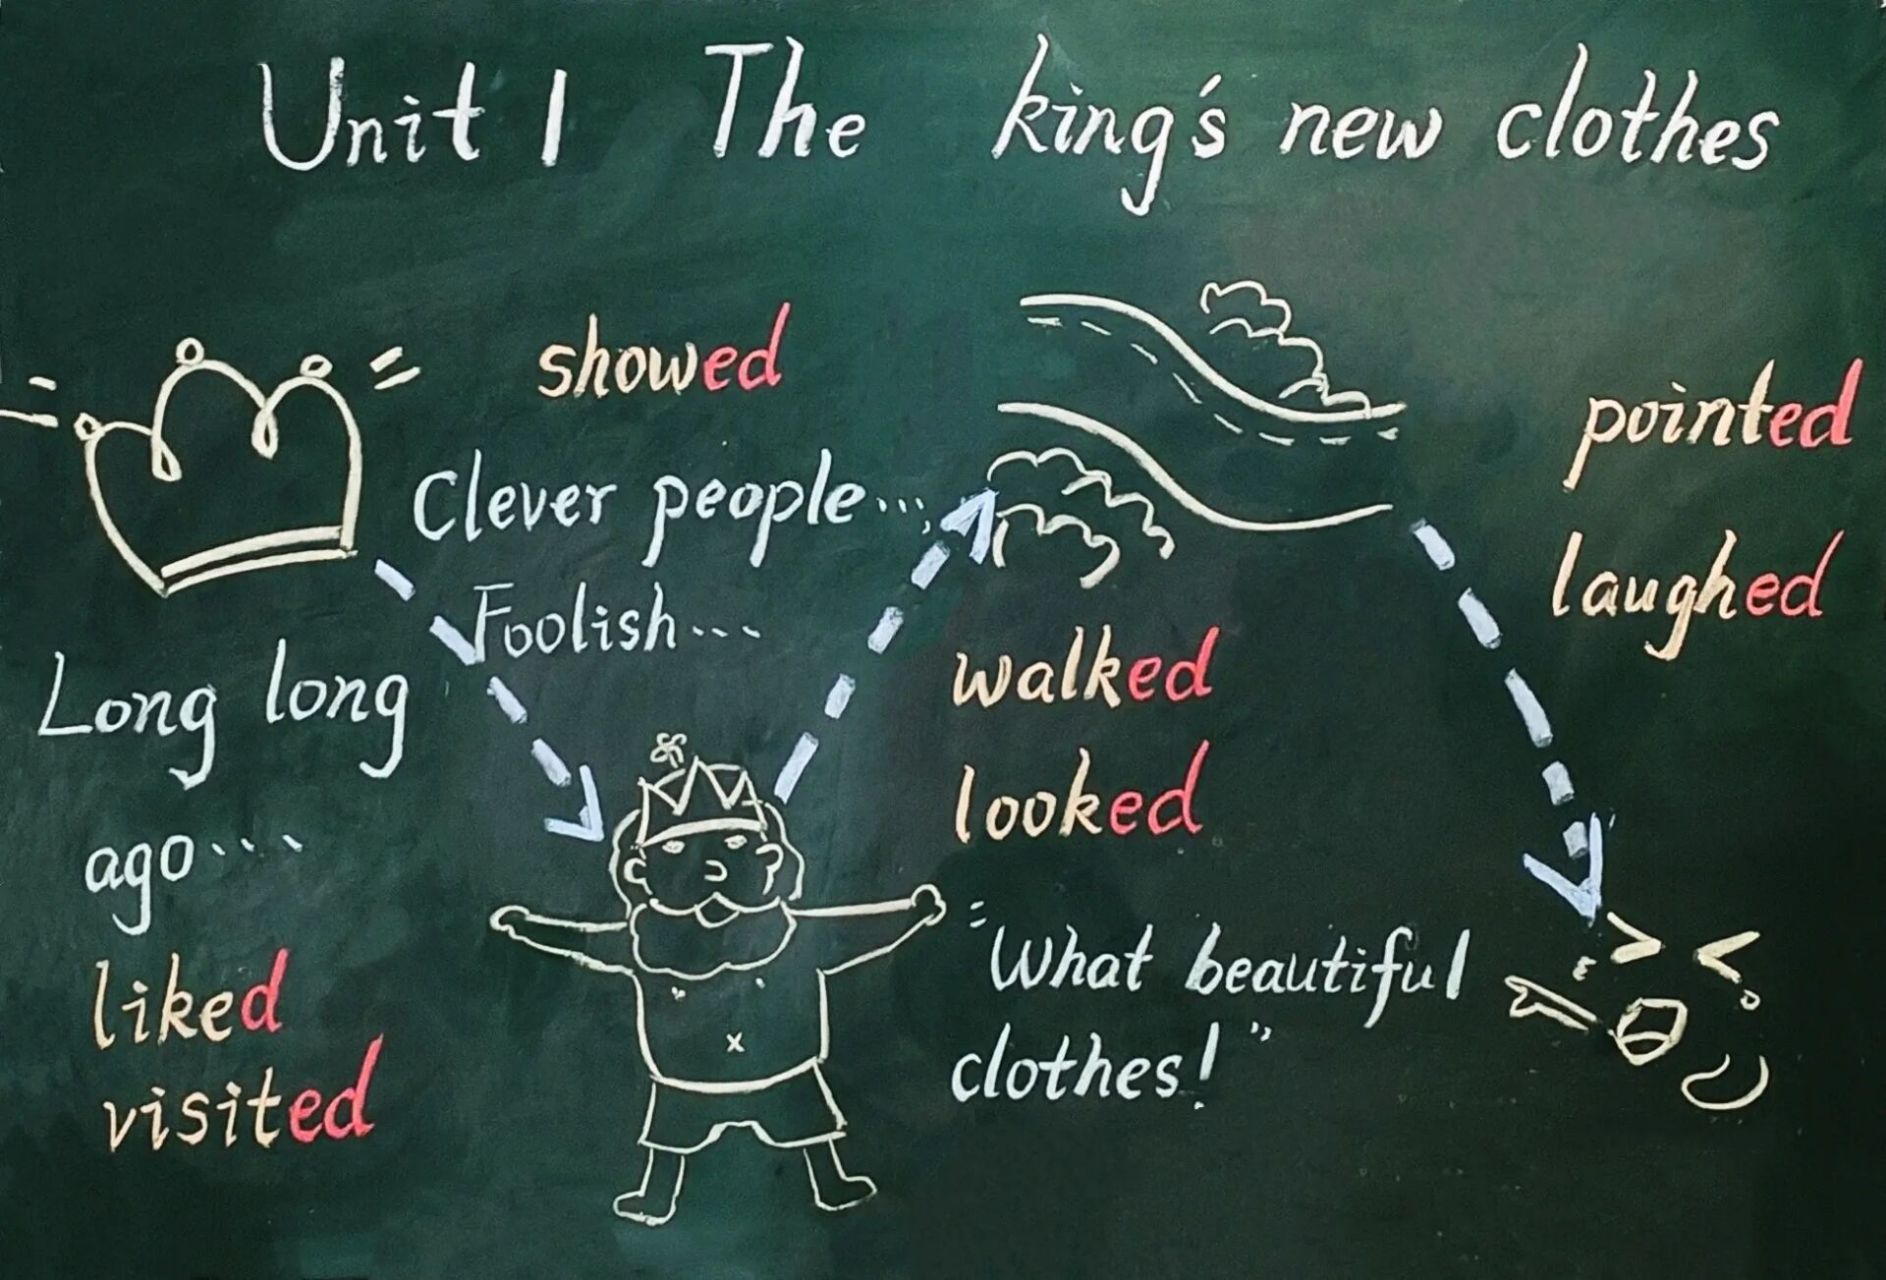 Unit 1 The king's new clothes
showed
Clever people...
Foolish...
Long long
ago...
liked
visited
walked
looked
"What beautiful
clothes!"
pointed
laughed